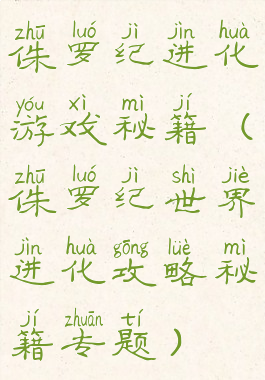 zhū luó jì jìn huà
侏罗纪进化
yóu xì mì jí
游戏秘籍（
zhū luó jì shì jiè
侏罗纪世界
jìn huà gōng lüè mì
进化攻略秘
jí zhuān tí
籍专题）